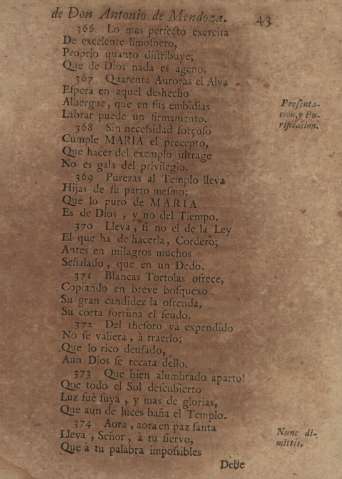 de Don Antonio de Mendoza. 43
366 Lo mas perfecto exercita
De excelente limosnero,
Proprio quanto distribuye;
Que de Dios nada es ageno,
367 Quarenta Auroras el Alva
Espera en aquel deshecho
Albergue, que en sus embidias
Labrar puede un firmamento.
Presenta-
cion, y Pu-
rificacion.
368 Sin necessidad forçoso
Cumple MARIA el precepto,
Que hacer del exemplo ultrage
No es gala del privilegio.
369 Purezas al Templo lleva
Hijas de su parto mesmo;
Que lo puro de MARIA
Es de Dios, y no del Tiempo.
370 Lleva, si no el de la Ley
El que ha de hacerla, Cordero;
Antes en milagros muchos
Señalado, que en un Dedo.
371 Blancas Tortolas ofrece,
Copiando en breve bosquexo
Su gran candidez la ofrenda,
Su corta fortuna el feudo.
372 Del thesoro va expendido
No se valiera, à traerlo;
Que lo rico deusado,
Aun Dios se recata dello.
373 Que bien alumbrado aparto!
Que todo el Sol descubierto
Luz fuè suya, y mas de glorias,
Que aun de luces baña el Templo.
374 Aora, aora en paz santa
Lleva, Señor, à tu siervo,
Que à tu palabra impossibles
Nunc di-
mittis.
Debe